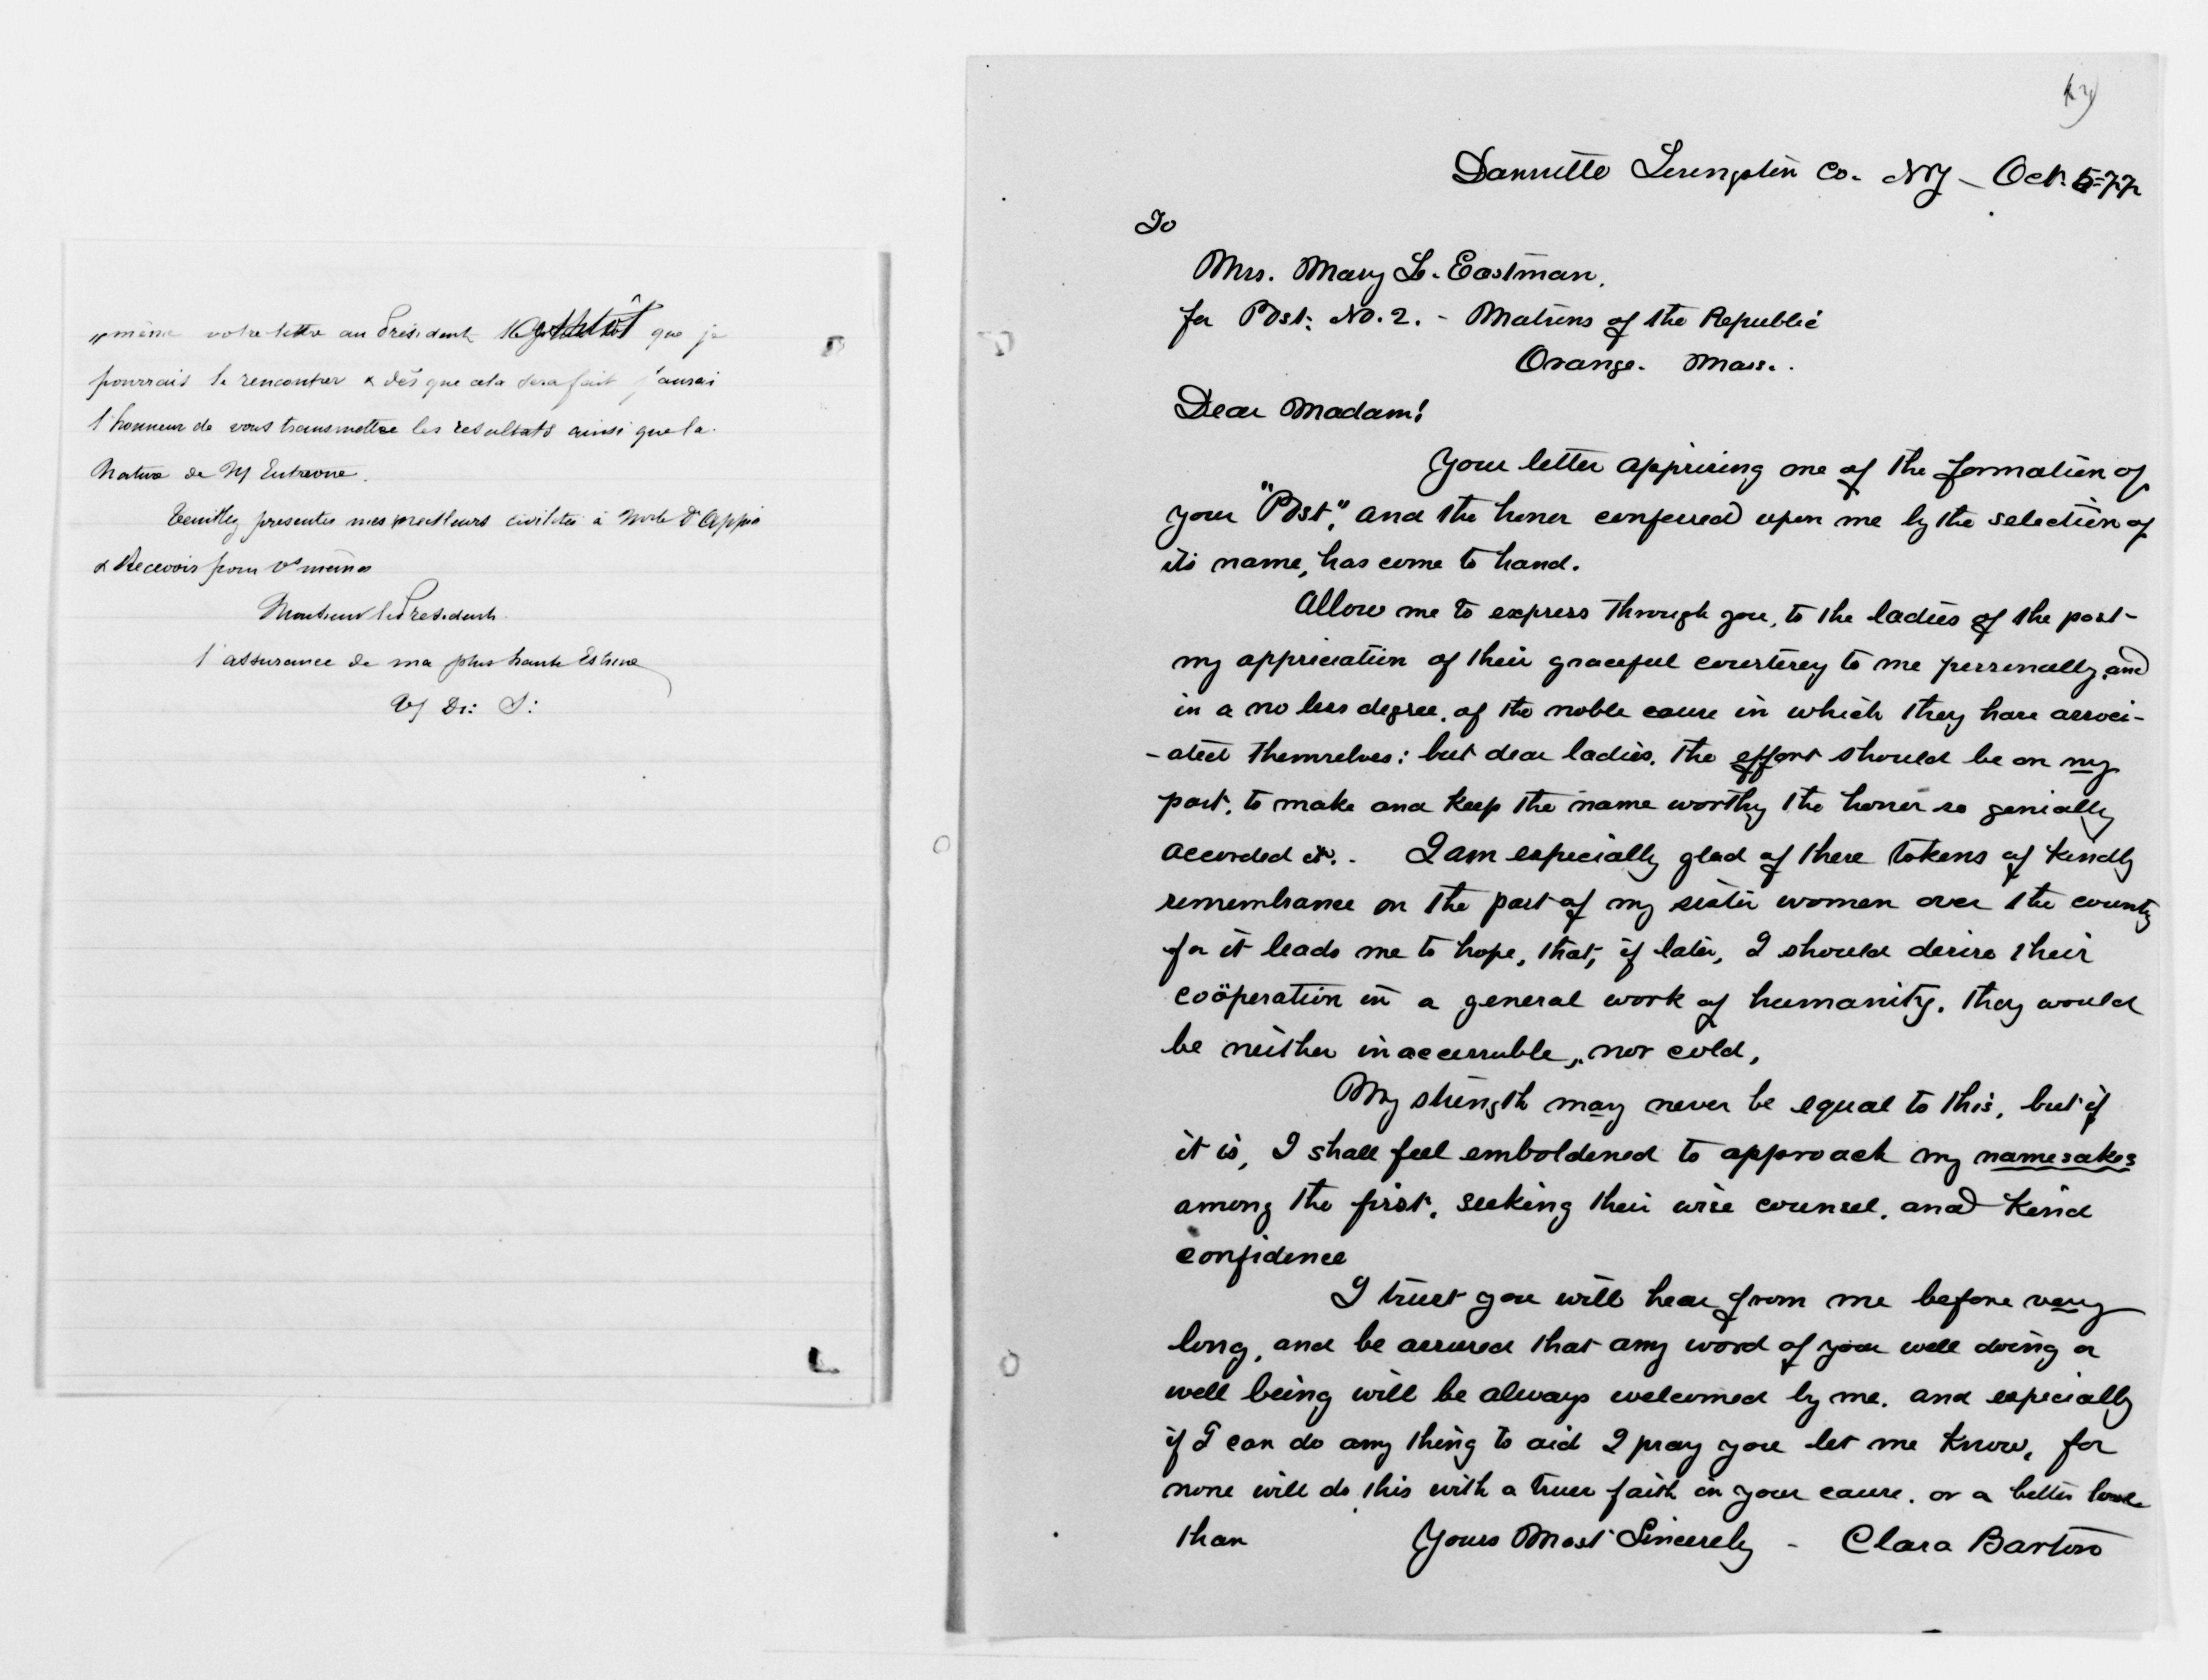 „même votre lettre au Président aussitôt que je
pourrais le rencontrer & dès que cela sera fait j'aurai
l'honneur de vous transmettre les resultats ainsi que la
Nature de M Entrevue.
Veuillez presenter mes meilleurs civilités à Mde D'Appia
& Recevoir pour Vs mêmes
Monsieur le President
l'assurance de ma plus haute Estime
Dansville Livingston Co. NY – Oct. 5=77
To
Mrs. Mary L. Eastman.
for Post. No. 2. - Matrons of the Republic
Orange. Mass.
Dear Madam!
Your letter apprising me of the formation of
your "Post", and the honor conferred upon me by the selection of
its name, has come to hand.
Allow me to express through you, to the ladies of the post-
my appreciation of their graceful courtesy to me personally, and
in a no less degree, of the noble cause in which they have associ-
-ated themselves: but dear ladies, the effort should be on my
part, to make and keep the name worthy the honor so genially
accorded it. - I am especially glad of these tokens of kindly
remembrance on the part of my sister women over the country
for it leads me to hope, that, if later, I should desire their
coöperation in a general work of humanity, they would
be neither inaccessible, nor cold,
My strength may never be equal to this, but if
it is, I shall feel emboldened to approach my namesakes
among the first, seeking their wise counsel, and kind
confidence
I trust you will hear from me before very
long, and be assured that any word of your well doing or
well being will be always welcomed by me. and especially
if I can do any thing to aid I pray you let me know, for
none will do this with a truer faith in your cause, or a better love
than Yours Most Sincerely - Clara Barton